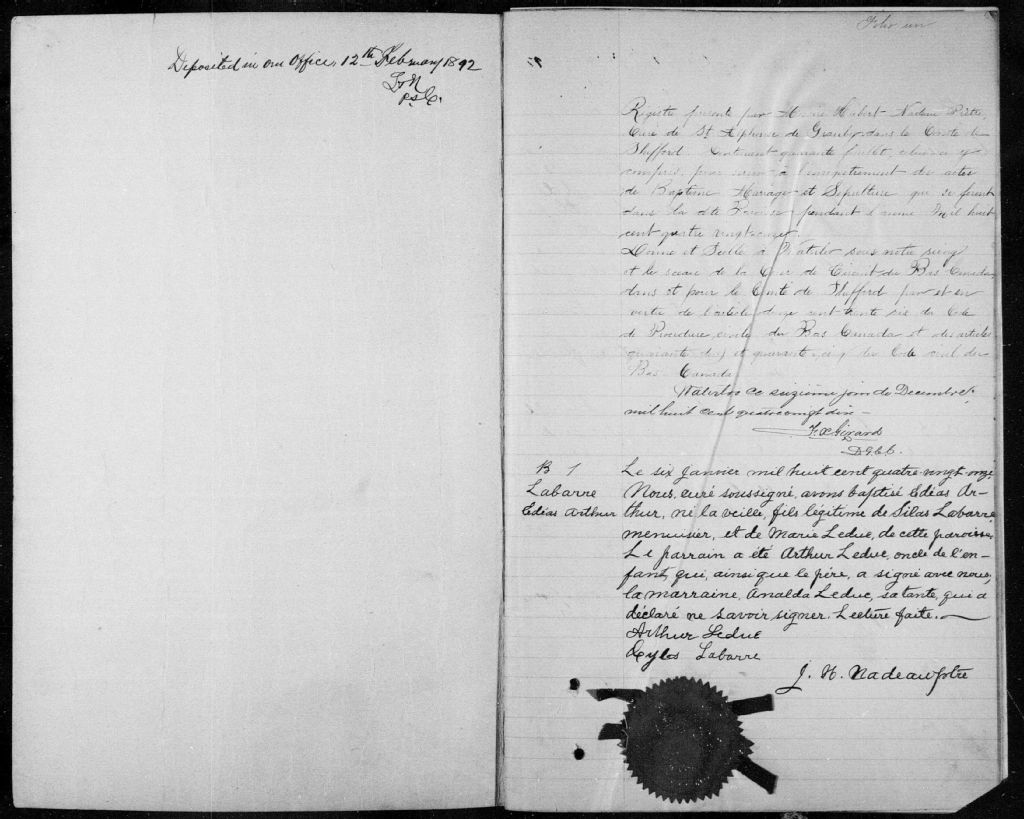 Deposited in our Office, 12th February 1892
P.S.C.
Folio un
Registre présenté par Hubert Nadeau Prêtre,
Curé de St Alphonse de Granby dans le Comté de
Shefford. Contenant quarante feuillets,
compris, pour servir à l'enregistrement des actes
de Baptême Mariage et Sépulture qui se feront
dans la dite Paroisse pendant l'année mil huit
cent quatre vingt onze.
Donné et Scellé à Waterloo sous notre seing
et le sceau de la Cour de Circuit du Bas Canada
dans et pour le Comté de Shefford par et en
vertu de l'article douze cent trente six du Code
de Procédure civile du Bas Canada et des articles
quarante deux et quarante cinq du Code civil du
Bas Canada
Waterloo ce seizième jour de Decembre
mil huit cent quatre vingt dix —
F. X. Girard
B 1
Labarre
Edéas Arthur
Le six Janvier mil huit cent quatre-vingt onze
Nous, curé soussigné, avons baptisé Edéas Ar-
thur, né la veille, fils légitime de Silas Labarre,
menuisier, et de Marie Leduc, de cette paroisse.
Le parrain a été Arthur Leduc, oncle de l'en-
fant, qui, ainsi que le père, a signé avec nous,
la marraine, Analda Leduc, sa tante, qui a
déclaré ne savoir signer. Lecture faite. —
Arthur Leduc
Cylas Labarre
J. H. Nadeau ptre